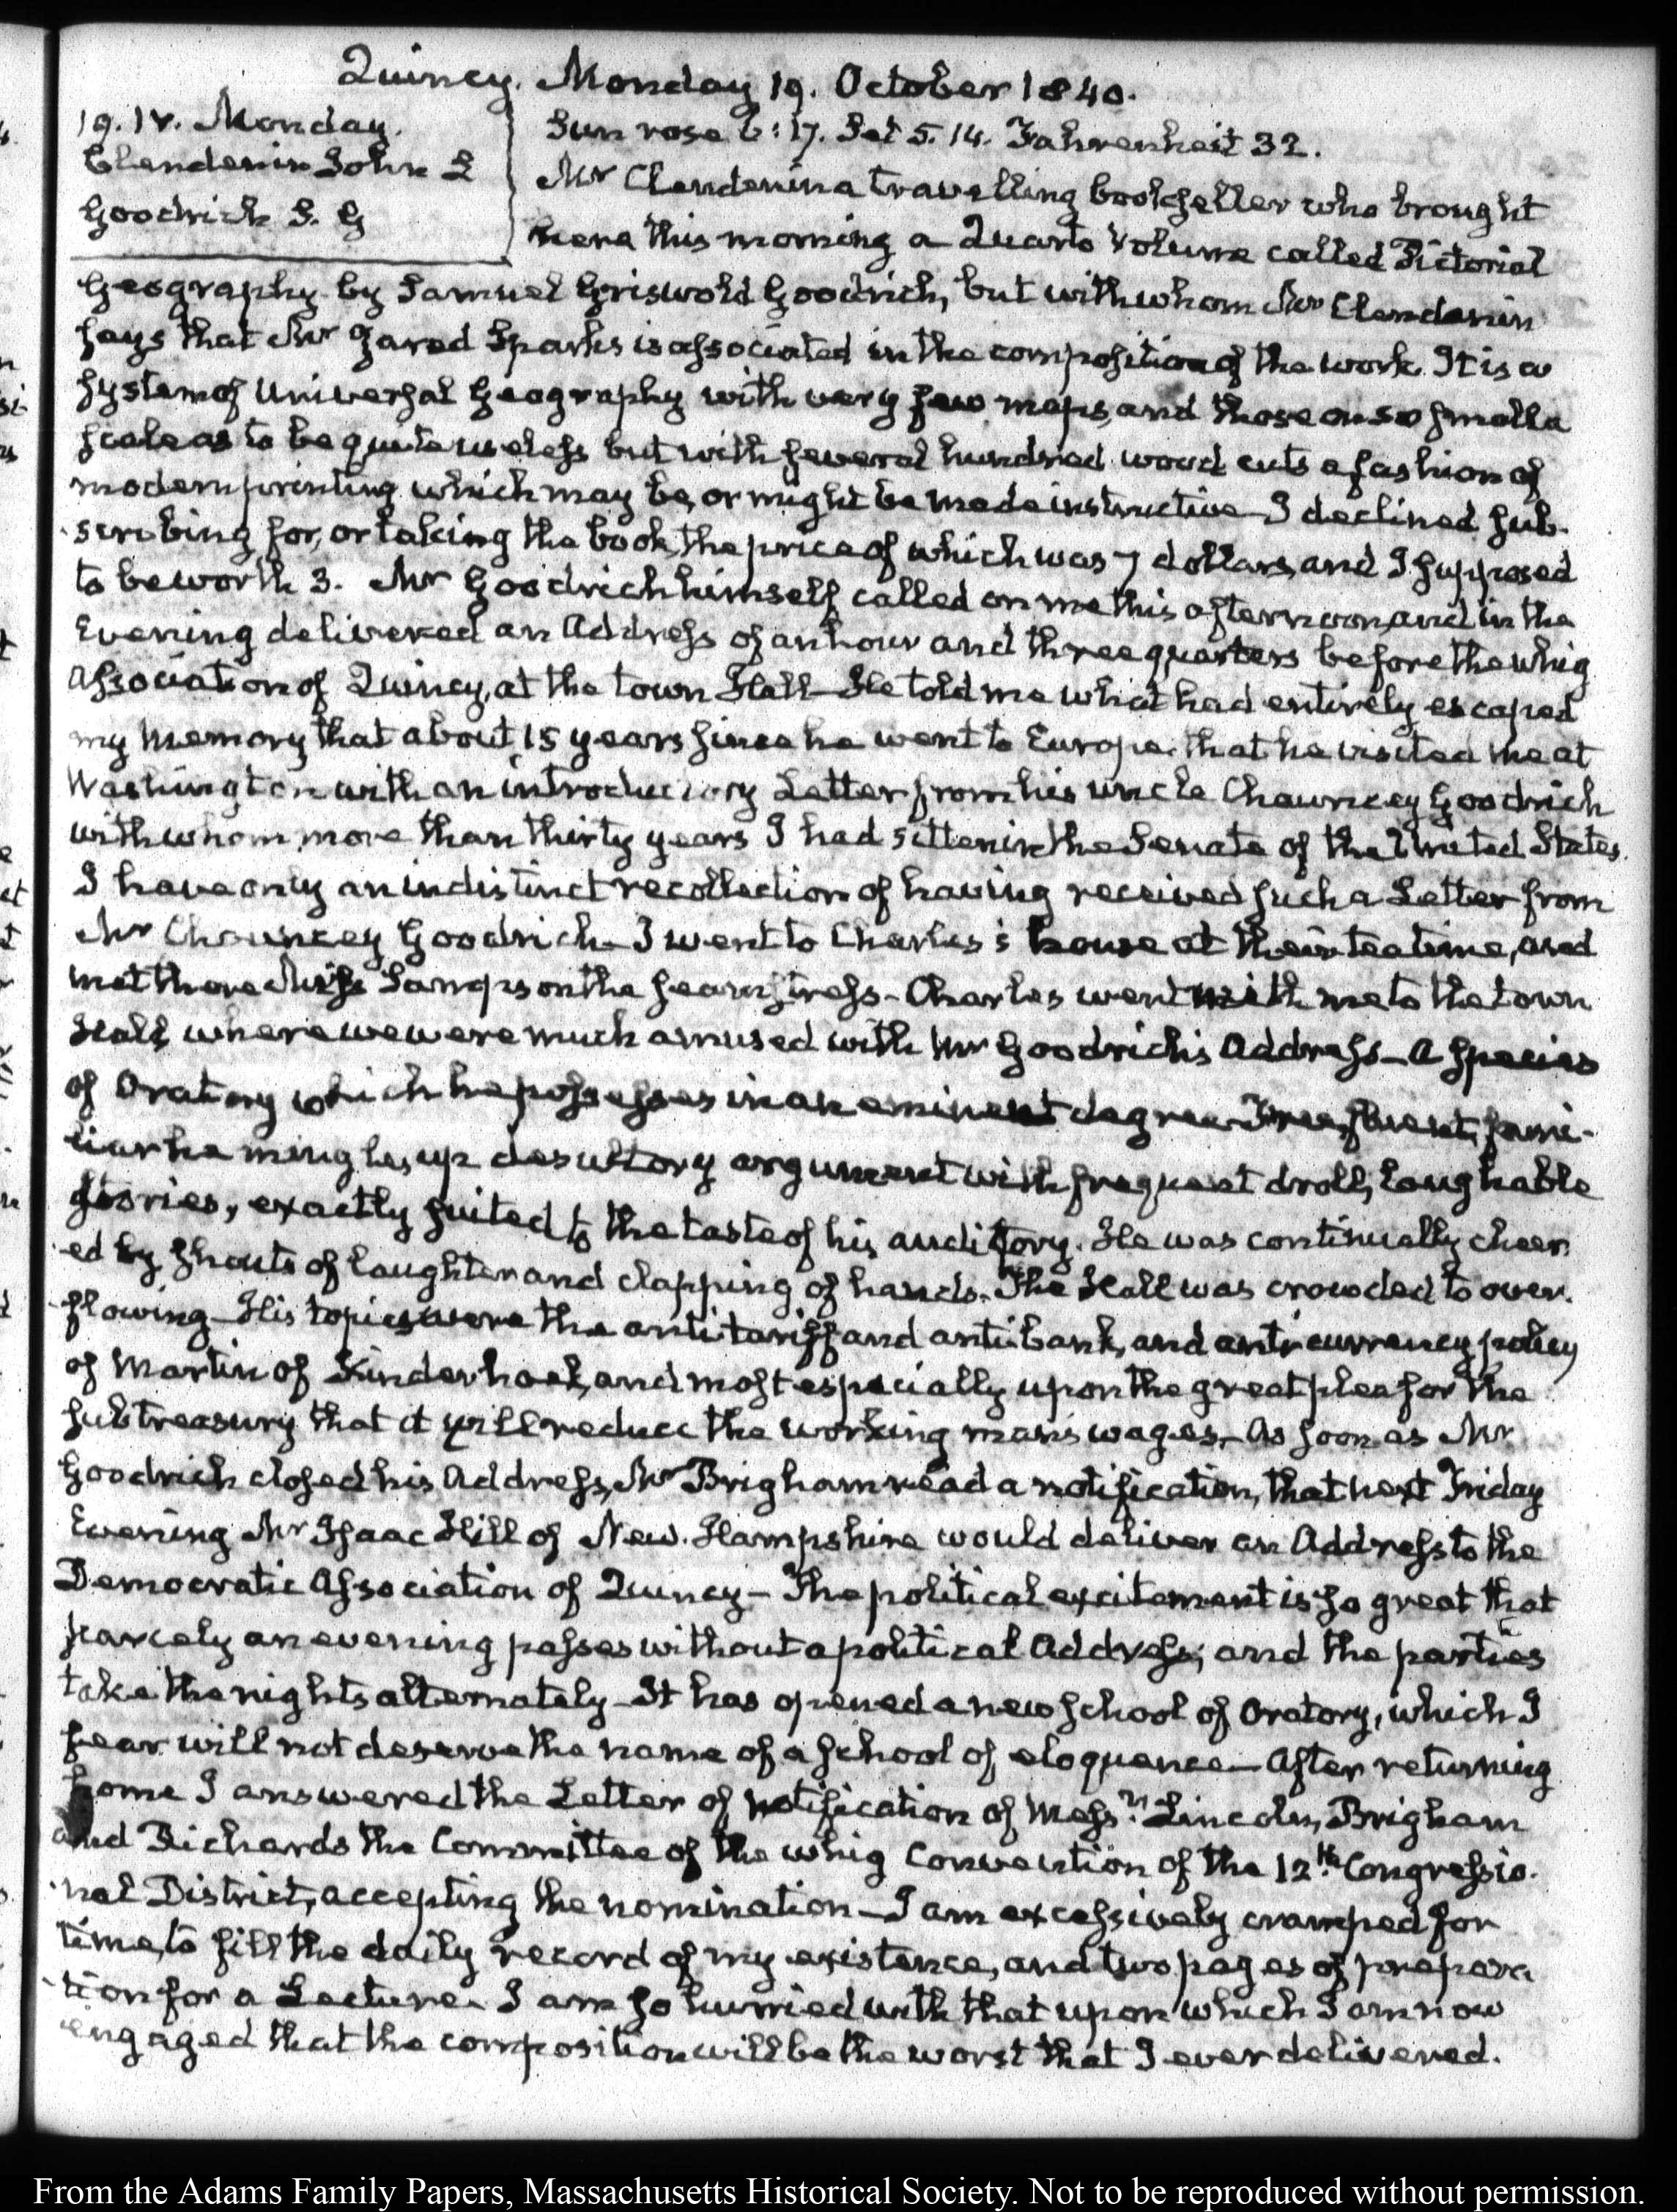 Quincy. Monday 19. October 1840.
19. IV. Monday.
Clendenin John S
Goodrich S. G
Sun rose 6:17. Set 5.14. Fahrenheit 32.
Mr Clendenin a travelling bookseller who brought
here this morning a Quarto Volume called Pictorial
Geography by Samuel Griswold Goodrich, but with whom Mr Clendenin
says that Mr Jared Sparks is associated in the composition of the work. It is a
system of Universal Geography with very few maps, and those on so small a
scale as to be quite useless but with several hundred wood cuts a fashion of
modern printing which may be, or might be made instructive—I declined sub-
scribing for, or taking the book, the price of which was 7 dollars, and I supposed
to be worth 3. Mr Goodrich himself called on me this afternoon, and in the
Evening delivered an Address of an hour and three quarters before the Whig
Association of Quincy, at the town Hall—He told me what had entirely escaped
my Memory, that about 15 years since he went to Europe. that he visited me at
Washington with an introductory Letter from his uncle Chauncey Goodrich
with whom more than thirty years I had sitten in the Senate of the United States.
I have only an indistinct recollection of having received such a Letter from
Mr Chauncey Goodrich—I went to Charles's house at their tea time, and
met there Miss Sampson the seamstress—Charles went with me to the town
Hall, where we were much amused with Mr Goodrich's Address—A species
of Oratory which he possesses in an eminent degree—Free, fluent, fami-
liar he mingles, up desultory argument with frequent droll, laughable
stories, exactly suited to the taste of his auditory. He was continually cheer-
ed by shouts of laughter and clapping of hands. The Hall was crowded to over-
flowing—His topics were the anti tariff and anti bank, and anti currency policy
of Martin of Kinderhook, and most especially upon the great plea for the
subtreasury that it will reduce the working man's wages—As soon as Mr
Goodrich closed his Address, Mr Brigham read a notification, that next Friday
Evening Mr Isaac Hill of New-Hampshire would deliver an Address to the
Democratic Association of Quincy—The political excitement is so great that
scarcely an evening passes without a political Address; and the parties
take the nights alternately—It has opened a new school of Oratory, which I
fear will not deserve the name of a school of eloquence—After returning
home I answered the Letter of notification of Messrs. Lincoln, Brigham
and Richards the Committee of the Whig Convention of the 12th. Congressio-
nal District, accepting the nomination—I am excessively cramped for
time, to fill the daily record of my existence, and two pages of prepara-
tion for a Lecture. I am so hurried with that upon which I am now
engaged that the composition will be the worst that I ever delivered.
From the Adams Family Papers, Massachusetts Historical Society. Not to be reproduced without permission.